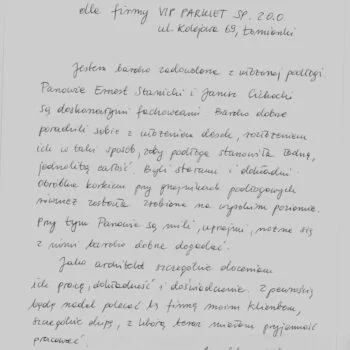 dla firmy VIP PARKIET SP. Z O.O.
ul. Kolejowa 69, Łomianki
Jestem bardzo zadowolona z ułożonej podłogi.
Panowie Ernest Stanicki i Janusz Cichocki
są doskonałymi fachowcami. Bardzo dobrze
poradzili sobie z ułożeniem desek, rozłożeniem
ich w taki sposób, żeby podłoga stanowiła ładną,
jednolitą całość. Byli staranni i dokładni.
Obróbka korkiem przy grzejnikach podłogowych
również została zrobiona na wysokim poziomie.
Przy tym Panowie są mili, uprzejmi, można się
z nimi bardzo dobrze dogadać.
Jako architekt szczególnie doceniam
ich pracę, dokładność i doświadczenie. Z pewnością
będę nadal polecać tę firmę moim klientom,
szczególnie ekipę, z którą teraz miałam przyjemność
pracować.